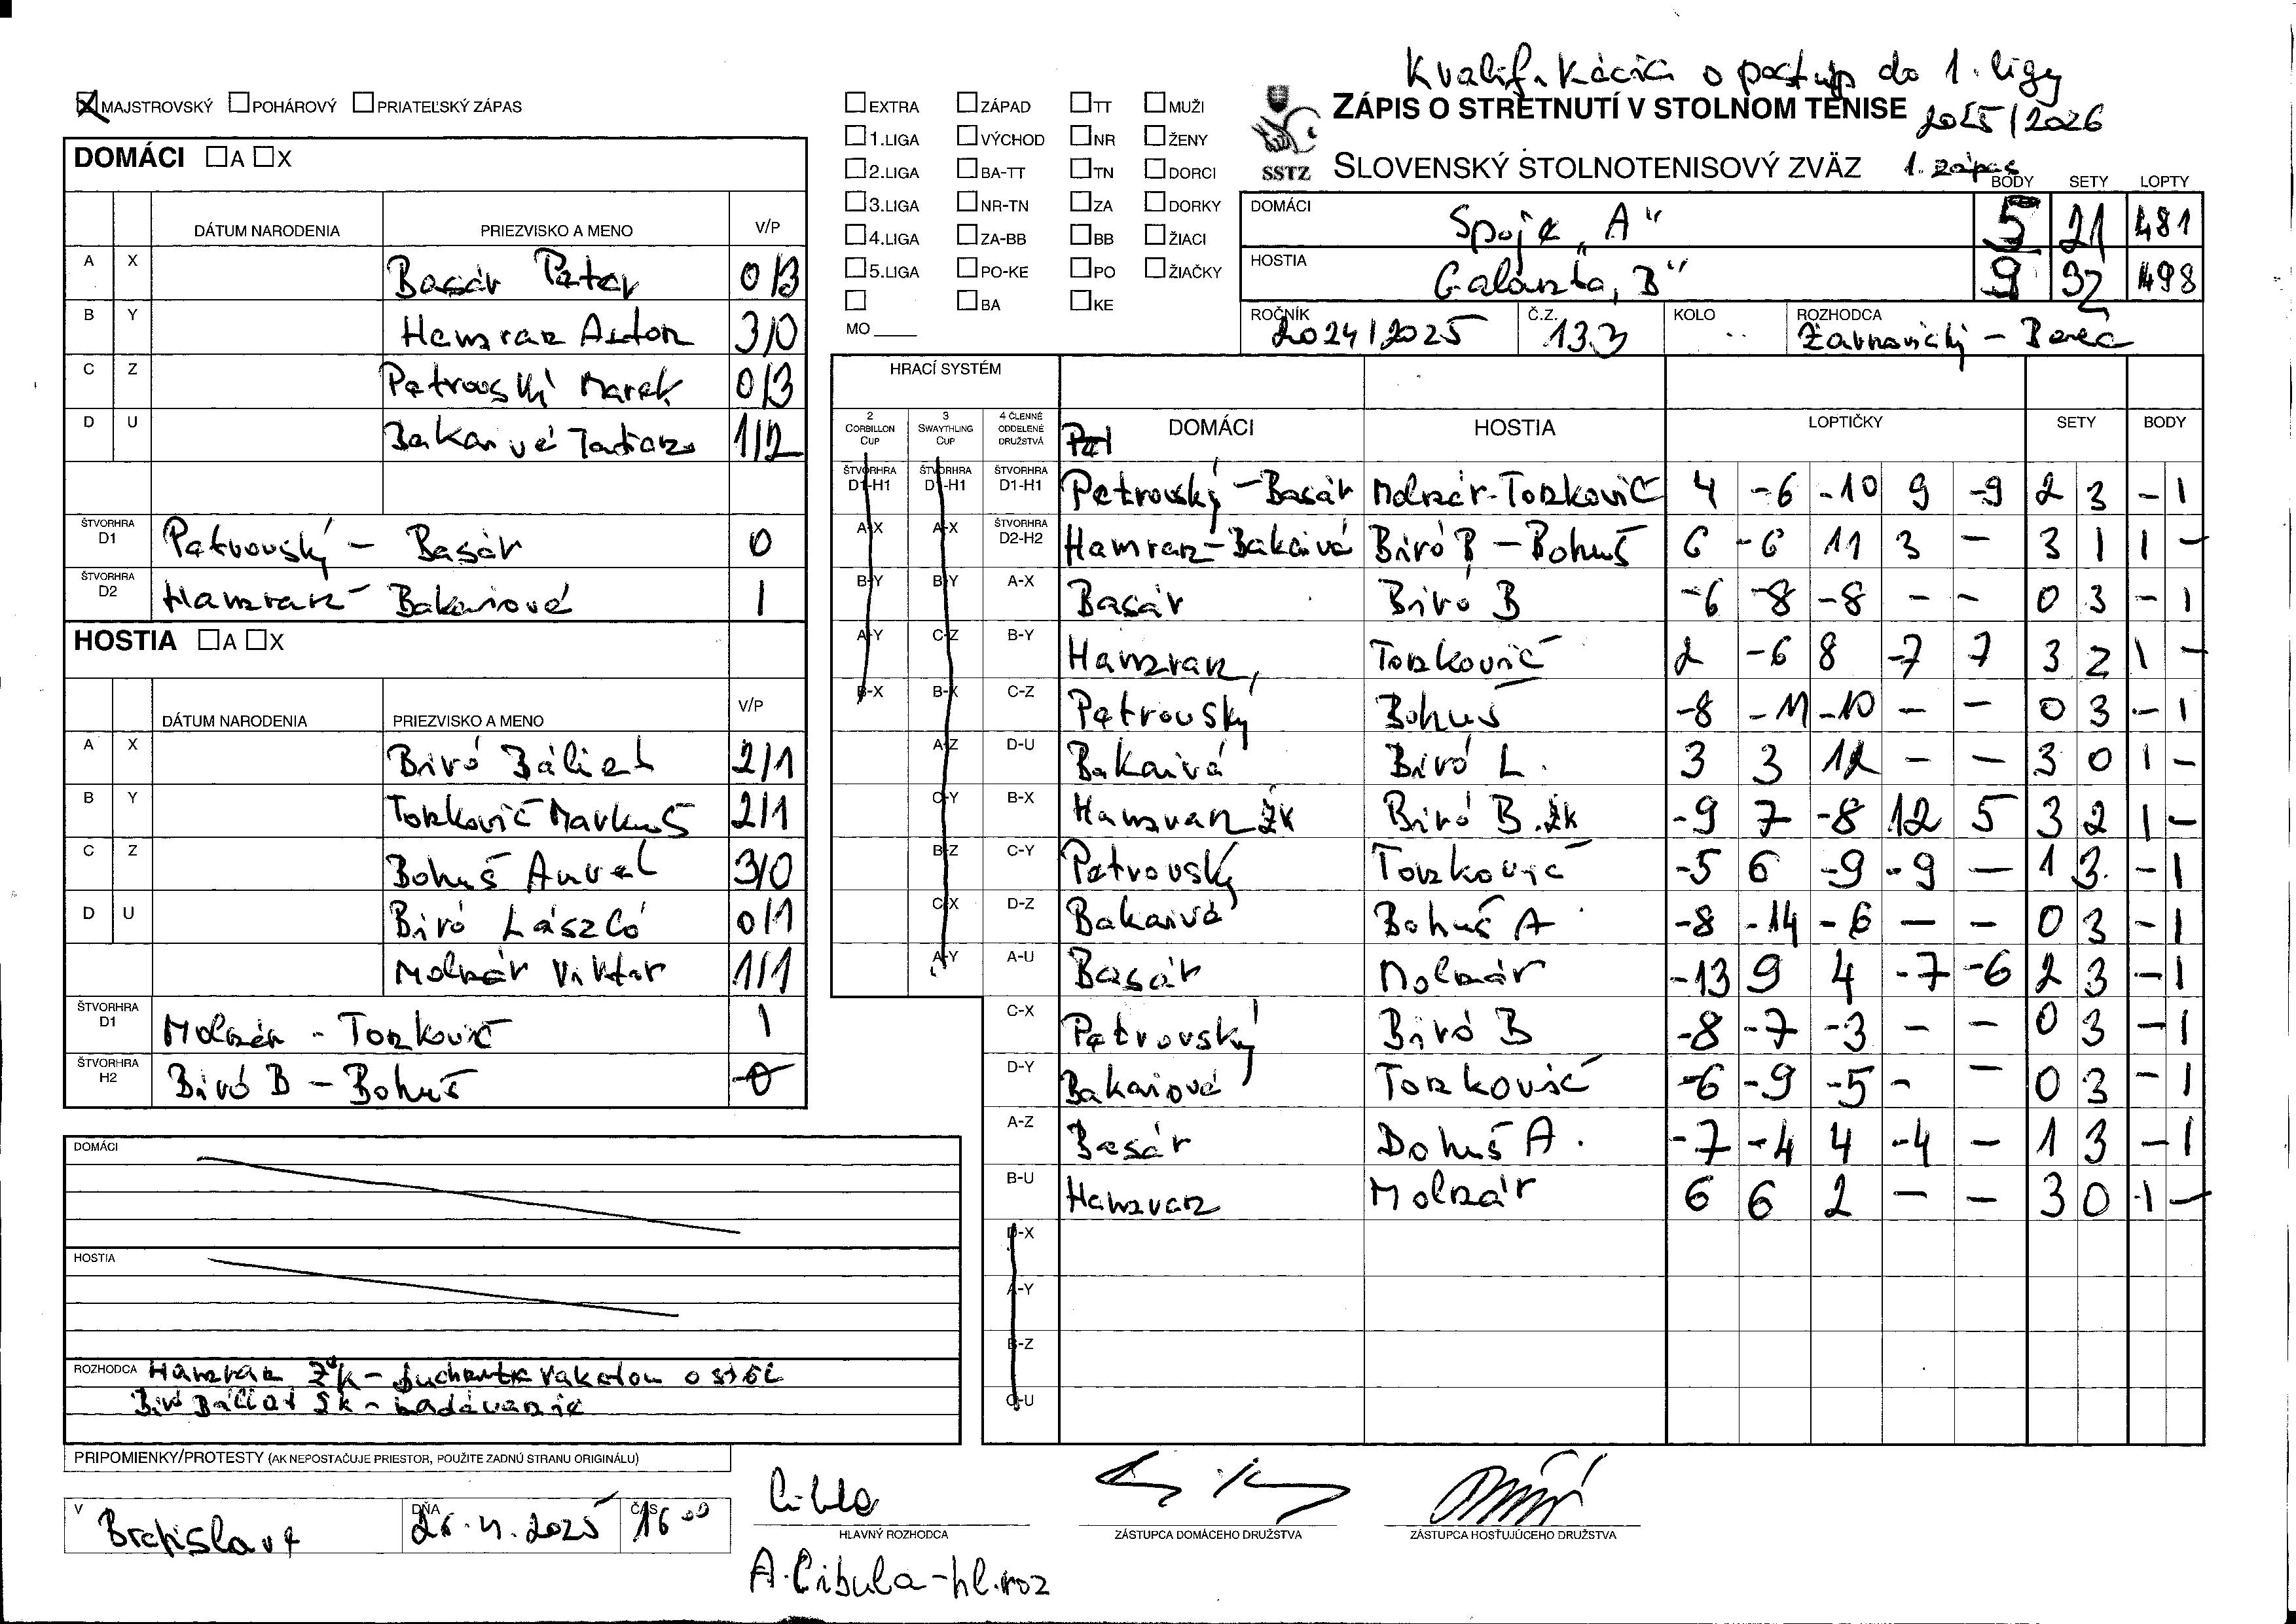 Kvalifikácia o postup do 1. ligy
2025/2026
1. zápas
☒ MAJSTROVSKÝ ☐ POHÁROVÝ ☐ PRIATEĽSKÝ ZÁPAS
DOMÁCI ☐ A ☐ X
DÁTUM NARODENIA PRIEZVISKO A MENO V/P
A X Basár Peter 0/3
B Y Hamran Anton 3/0
C Z Petrovský Marek 0/3
D U 1/2
ŠTVORHRA D1 Petrovský - Basár 0
ŠTVORHRA D2 Hamran - Bakaiová 1
HOSTIA ☐ A ☐ X
DÁTUM NARODENIA PRIEZVISKO A MENO V/P
A X Biró Bálint 2/1
B Y Torkovič Markus 2/1
C Z Bohuš Aurel 3/0
D U Biró László 0/1
Molnár Viktor 1/1
ŠTVORHRA D1 Molnár - Torkovič 1
ŠTVORHRA H2 Biró B - Bohuš 0
DOMÁCI
HOSTIA
ROZHODCA
PRIPOMIENKY/PROTESTY (AK NEPOSTAČUJE PRIESTOR, POUŽITE ZADNÚ STRANU ORIGINÁLU)
V Bratislava DŇA 26.4.2025 ČAS 16 00
☐ EXTRA ☐ ZÁPAD ☐ TT ☐ MUŽI
☐ 1.LIGA ☐ VÝCHOD ☐ NR ☐ ŽENY
☐ 2.LIGA ☐ BA-TT ☐ TN ☐ DORCI
☐ 3.LIGA ☐ NR-TN ☐ ZA ☐ DORKY
☐ 4.LIGA ☐ ZA-BB ☐ BB ☐ ŽIACI
☐ 5.LIGA ☐ PO-KE ☐ PO ☐ ŽIAČKY
☐ ☐ BA ☐ KE
MO
SSTZ
ZÁPIS O STRETNUTÍ V STOLNOM TENISE
SLOVENSKÝ STOLNOTENISOVÝ ZVÄZ
BODY SETY LOPTY
DOMÁCI Spoje „A" 5 21 481
HOSTIA Galanta „B" 9 32 498
ROČNÍK 2024/2025 Č.Z. 133 KOLO ROZHODCA
HRACÍ SYSTÉM
2 CORBILLON CUP 3 SWAYTHLING CUP 4 ČLENNÉ ODDELENÉ DRUŽSTVÁ DOMÁCI HOSTIA LOPTIČKY SETY BODY
ŠTVORHRA D1-H1 ŠTVORHRA D1-H1 ŠTVORHRA D1-H1 Petrovský - Basár Molnár-Torkovič 4 -6 -10 9 -9 2 3 - 1
A-X A-X ŠTVORHRA D2-H2 Hamran-Bakaivá Biró B - Bohuš 6 -6 11 3 - 3 1 1 -
B-Y B-Y A-X Basár Biró B -6 -8 -8 - - 0 3 - 1
A-Y C-Z B-Y Hamran Torkovič 2 -6 8 -7 7 3 2 1 -
B-X B-X C-Z Petrovský Bohuš -8 -11 -10 - - 0 3 - 1
A-Z D-U Bakaivá Biró L. 3 3 12 - - 3 0 1 -
C-Y B-X Hamran ŽK Biró B. ŽK -9 7 -8 12 5 3 2 1 -
B-Z C-Y Petrovský Torkovič -5 6 -9 -9 - 1 3 - 1
C-X D-Z Bakaivá Bohuš A -8 -14 -6 - - 0 3 - 1
A-Y A-U Basár Molnár -13 9 4 -7 -6 2 3 - 1
C-X Petrovský Biró B -8 -7 -3 - - 0 3 - 1
D-Y Bakaiová Torkovič -6 -9 -5 - - 0 3 - 1
A-Z Basár Bohuš A. -7 -4 4 -4 - 1 3 - 1
B-U Hamran Molnár 6 6 2 - - 3 0 1 -
D-X
A-Y
B-Z
C-U
HLAVNÝ ROZHODCA ZÁSTUPCA DOMÁCEHO DRUŽSTVA ZÁSTUPCA HOSŤUJÚCEHO DRUŽSTVA
A. Cibula - hl. roz